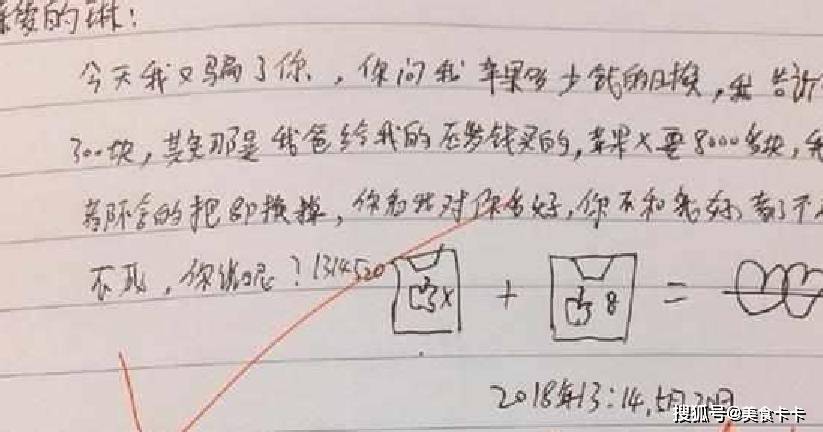 亲爱的琳：
今天我又骗了你，你问我苹果多少钱的日换，我告诉
300块，其实那是我爸给我的压岁钱买的，苹果X要8000多块，我
都舍的把8换掉，你看我对你多好，你不和我好
不及，你说呢？1314520
X + 8 =
2018年13:14,5月20日
搜狐号@美食卡卡